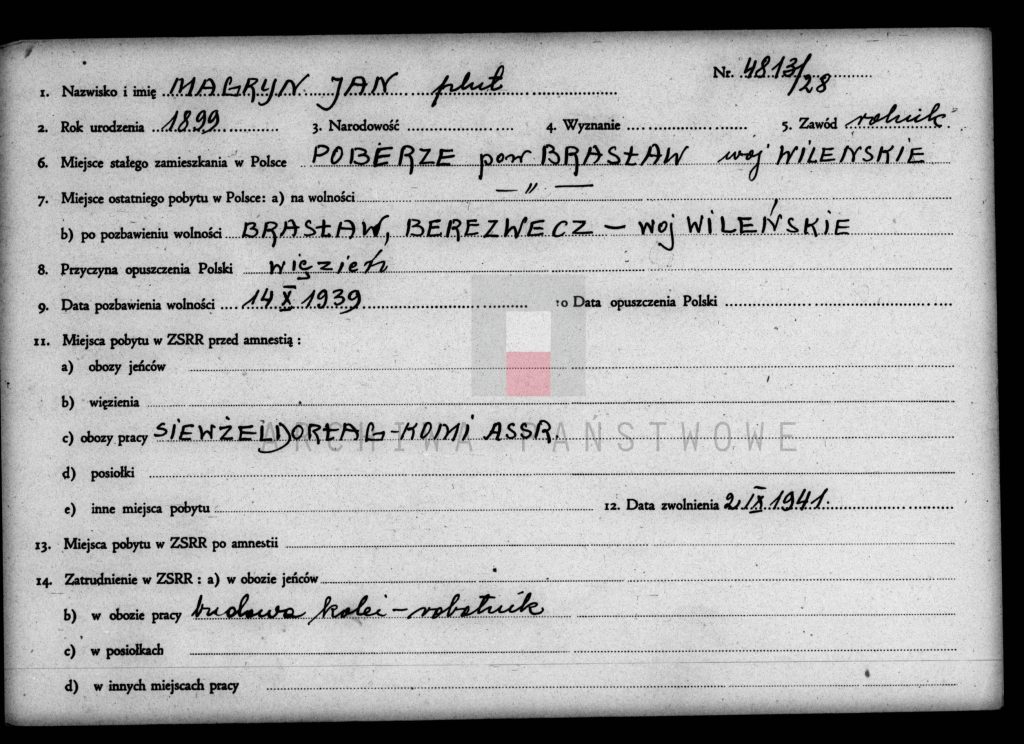 Nr. 4813/28
1. Nazwisko i imię MAGRYN JAN plut
2. Rok urodzenia 1899 3. Narodowość 4. Wyznanie 5. Zawód rolnik
6. Miejsce stałego zamieszkania w Polsce POBERZE pow BRASŁAW woj WILENSKIE
7. Miejsce ostatniego pobytu w Polsce: a) na wolności — " —
b) po pozbawieniu wolności BRASŁAW, BEREZWECZ – woj WILEŃSKIE
8. Przyczyna opuszczenia Polski więzień
9. Data pozbawienia wolności 14 X 1939 10 Data opuszczenia Polski
11. Miejsca pobytu w ZSRR przed amnestią :
a) obozy jeńców
b) więzienia
c) obozy pracy SIEWŻELDORŁAG-KOMI ASSR.
ARCHIWA PAŃSTWOWE
d) posiołki
e) inne miejsca pobytu 12. Data zwolnienia 2 IX 1941.
13. Miejsca pobytu w ZSRR po amnestii
14. Zatrudnienie w ZSRR : a) w obozie jeńców
b) w obozie pracy budowa kolei – robotnik
c) w posiołkach
d) w innych miejscach pracy